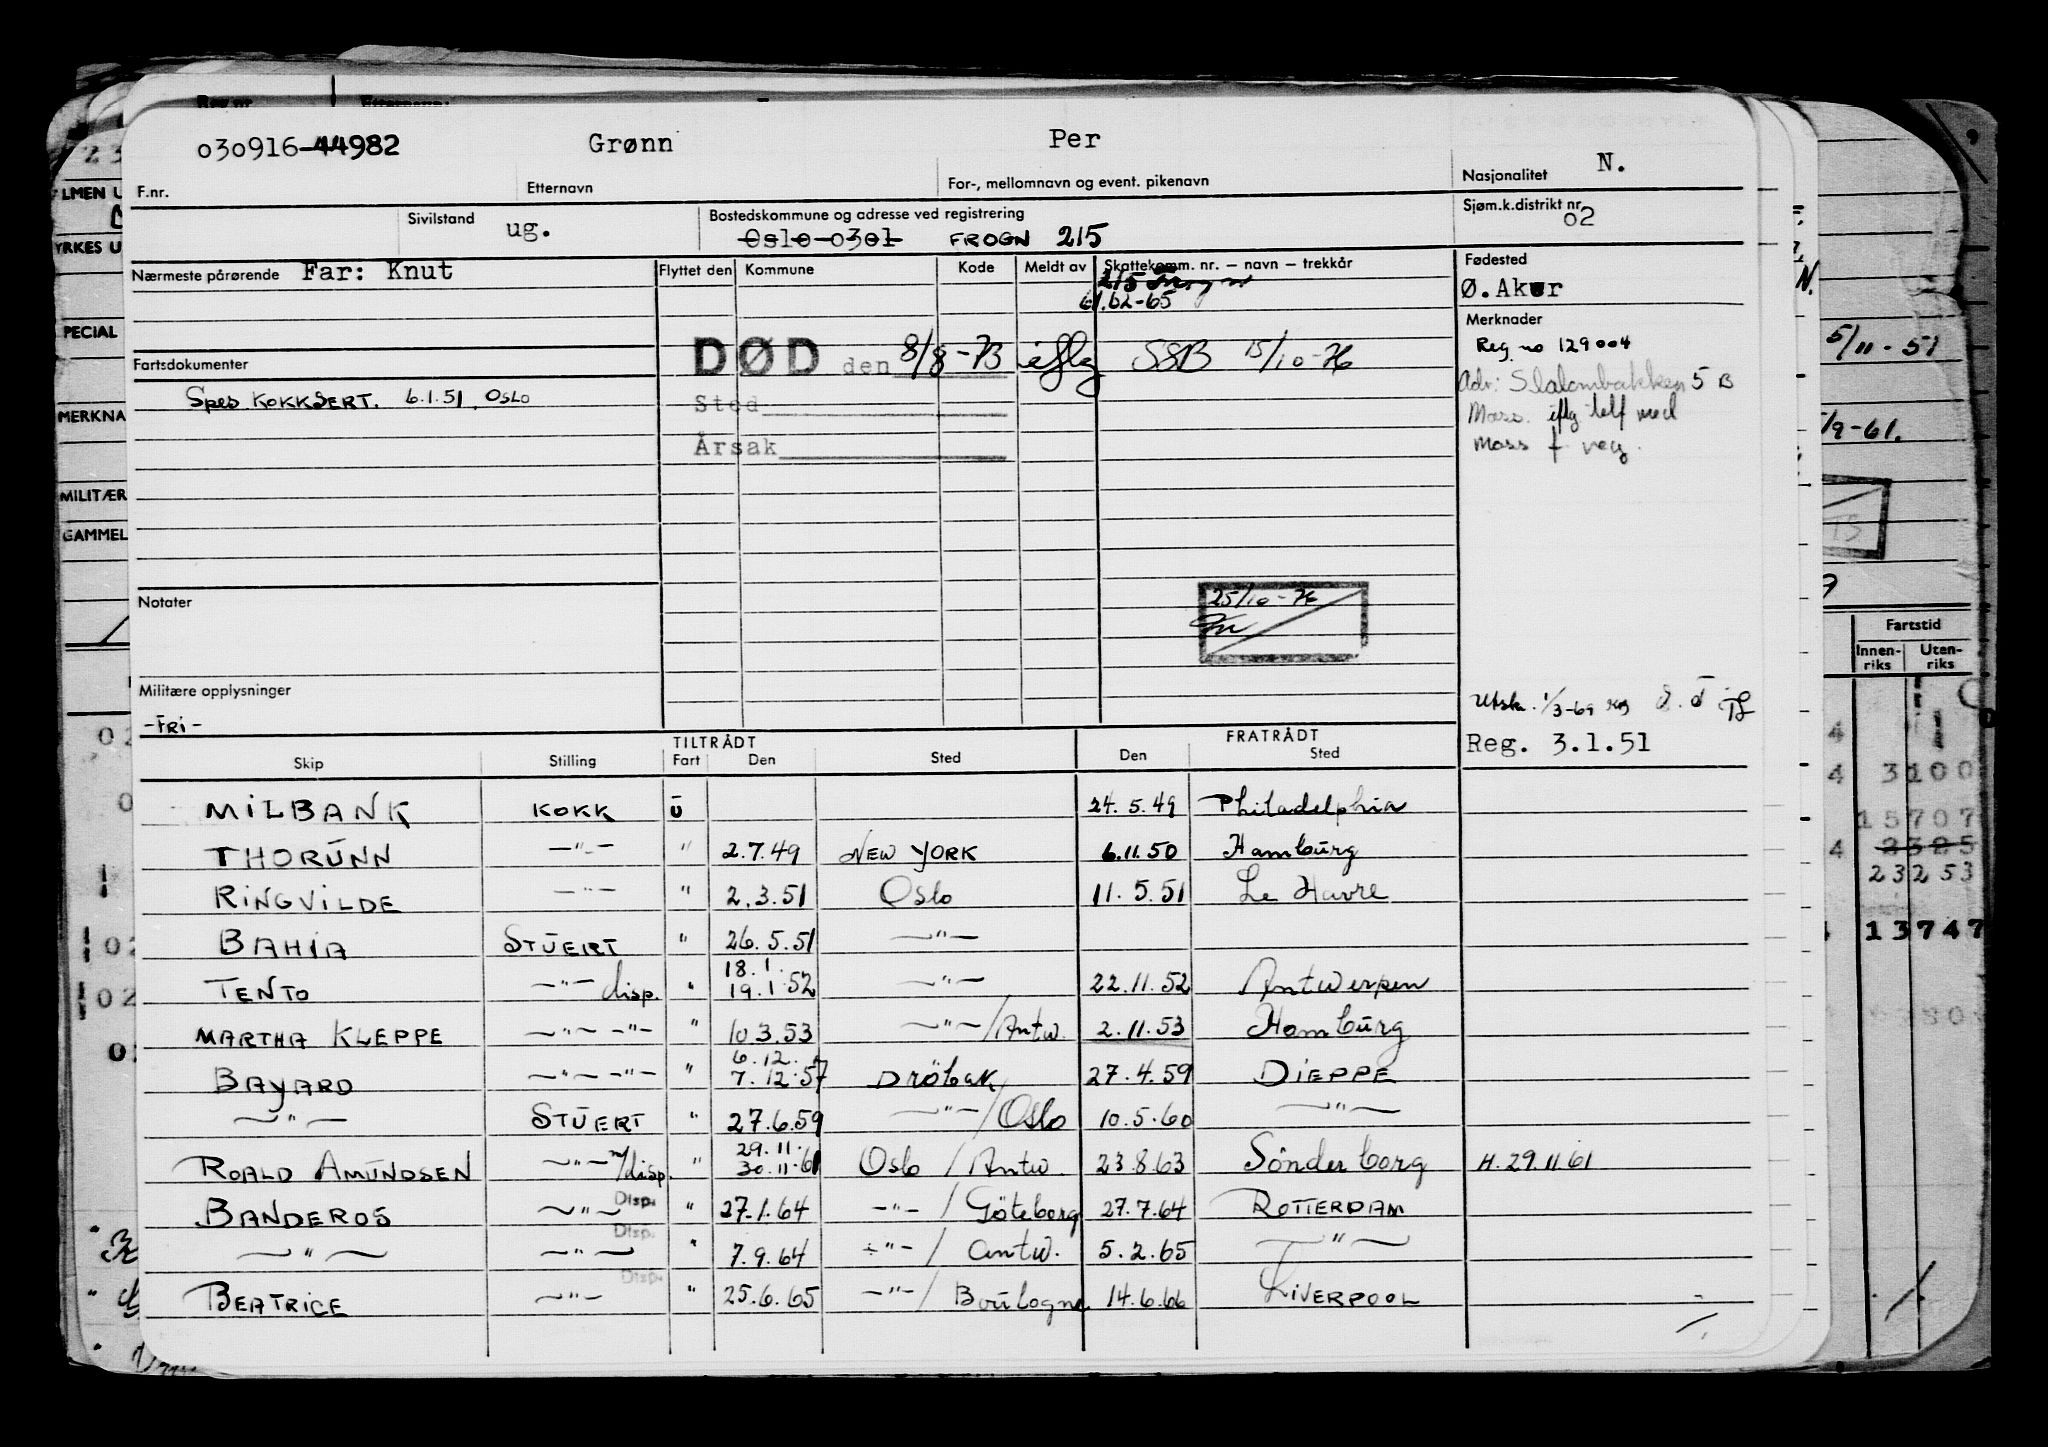 030916-44982 Grønn Per N.
F.nr. Etternavn For-, mellomnavn og event. pikenavn Nasjonalitet
Sivilstand ug. Bostedskommune og adresse ved registrering Sjøm.k.distrikt nr. 02
Oslo 0301 FROGN 215
Nærmeste pårørende Far: Knut Flyttet den Kommune Kode Meldt av Skattekomm. nr. – navn – trekkår Fødested
215 Frogn Ø. Aker
61.62-65
Merknader
Reg no 129004
DØD den 8/8-73 iflg SSB 15/10-76
Fartsdokumenter
Adr: Slalombakken 5 B
Spes. KOKKSERT. 6.1.51. OSLO
Sted
Mass. iflg telf med
Årsak
Mass f
25/10-76
Notater
Militære opplysninger
-FRI-
Utskr. 1/3-69
TILTRÅDT FRATRÅDT Reg. 3.1.51
Skip Stilling Fart Den Sted Den Sted
MILBANK KOKK U 24.5.49 Philadelphia
THORUNN —"— " 2.7.49 NEW YORK 6.11.50 Hamburg
RINGVILDE —"— " 2.3.51 Oslo 11.5.51 Le Havre
BAHIA STUERT " 26.5.51 —"—
TENTO —"— disp. " 18.1 19.1.52 —"— 22.11.52 Antwerpen
MARTHA KLEPPE —"— —"— " 10 3.53 —"—/Antw. 2.11.53 Hamburg
BAYARD —"— —"— " 6.12. 7.12.57 Drøbak 27.4.59 DIEPPE
—"— STUERT " 27.6.59 —"—/Oslo 10.5.60 —"—
ROALD AMUNDSEN —"— m/disp. " 29.11. 30.11.61 Oslo / Antw. 23.8.63 Sønderborg H. 29.11 61
BANDEROS —"— Disp. " 27.1.64 —"—/ Göteborg 27.7.64 ROTTERDAM
—"— —"— Disp. " 7.9.64 —"—/ Antw. 5.2.65 —"—
BEATRICE —"— Disp. " 25.6.65 —"—/ Boulogne 14.6.66 LIVERPOOL
LMEN U
YRKES U
PECIAL
MERKNA
MILITÆR
GAMMEL
N.
5/11-51
/9-61.
Fartstid
Innen-riks Uten-riks
4 3100
15707
4 2325
23253
13747